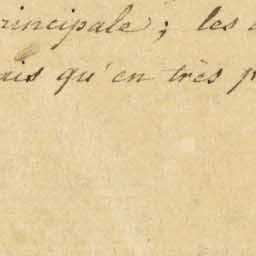 rincipale; les
ais qu'en très p